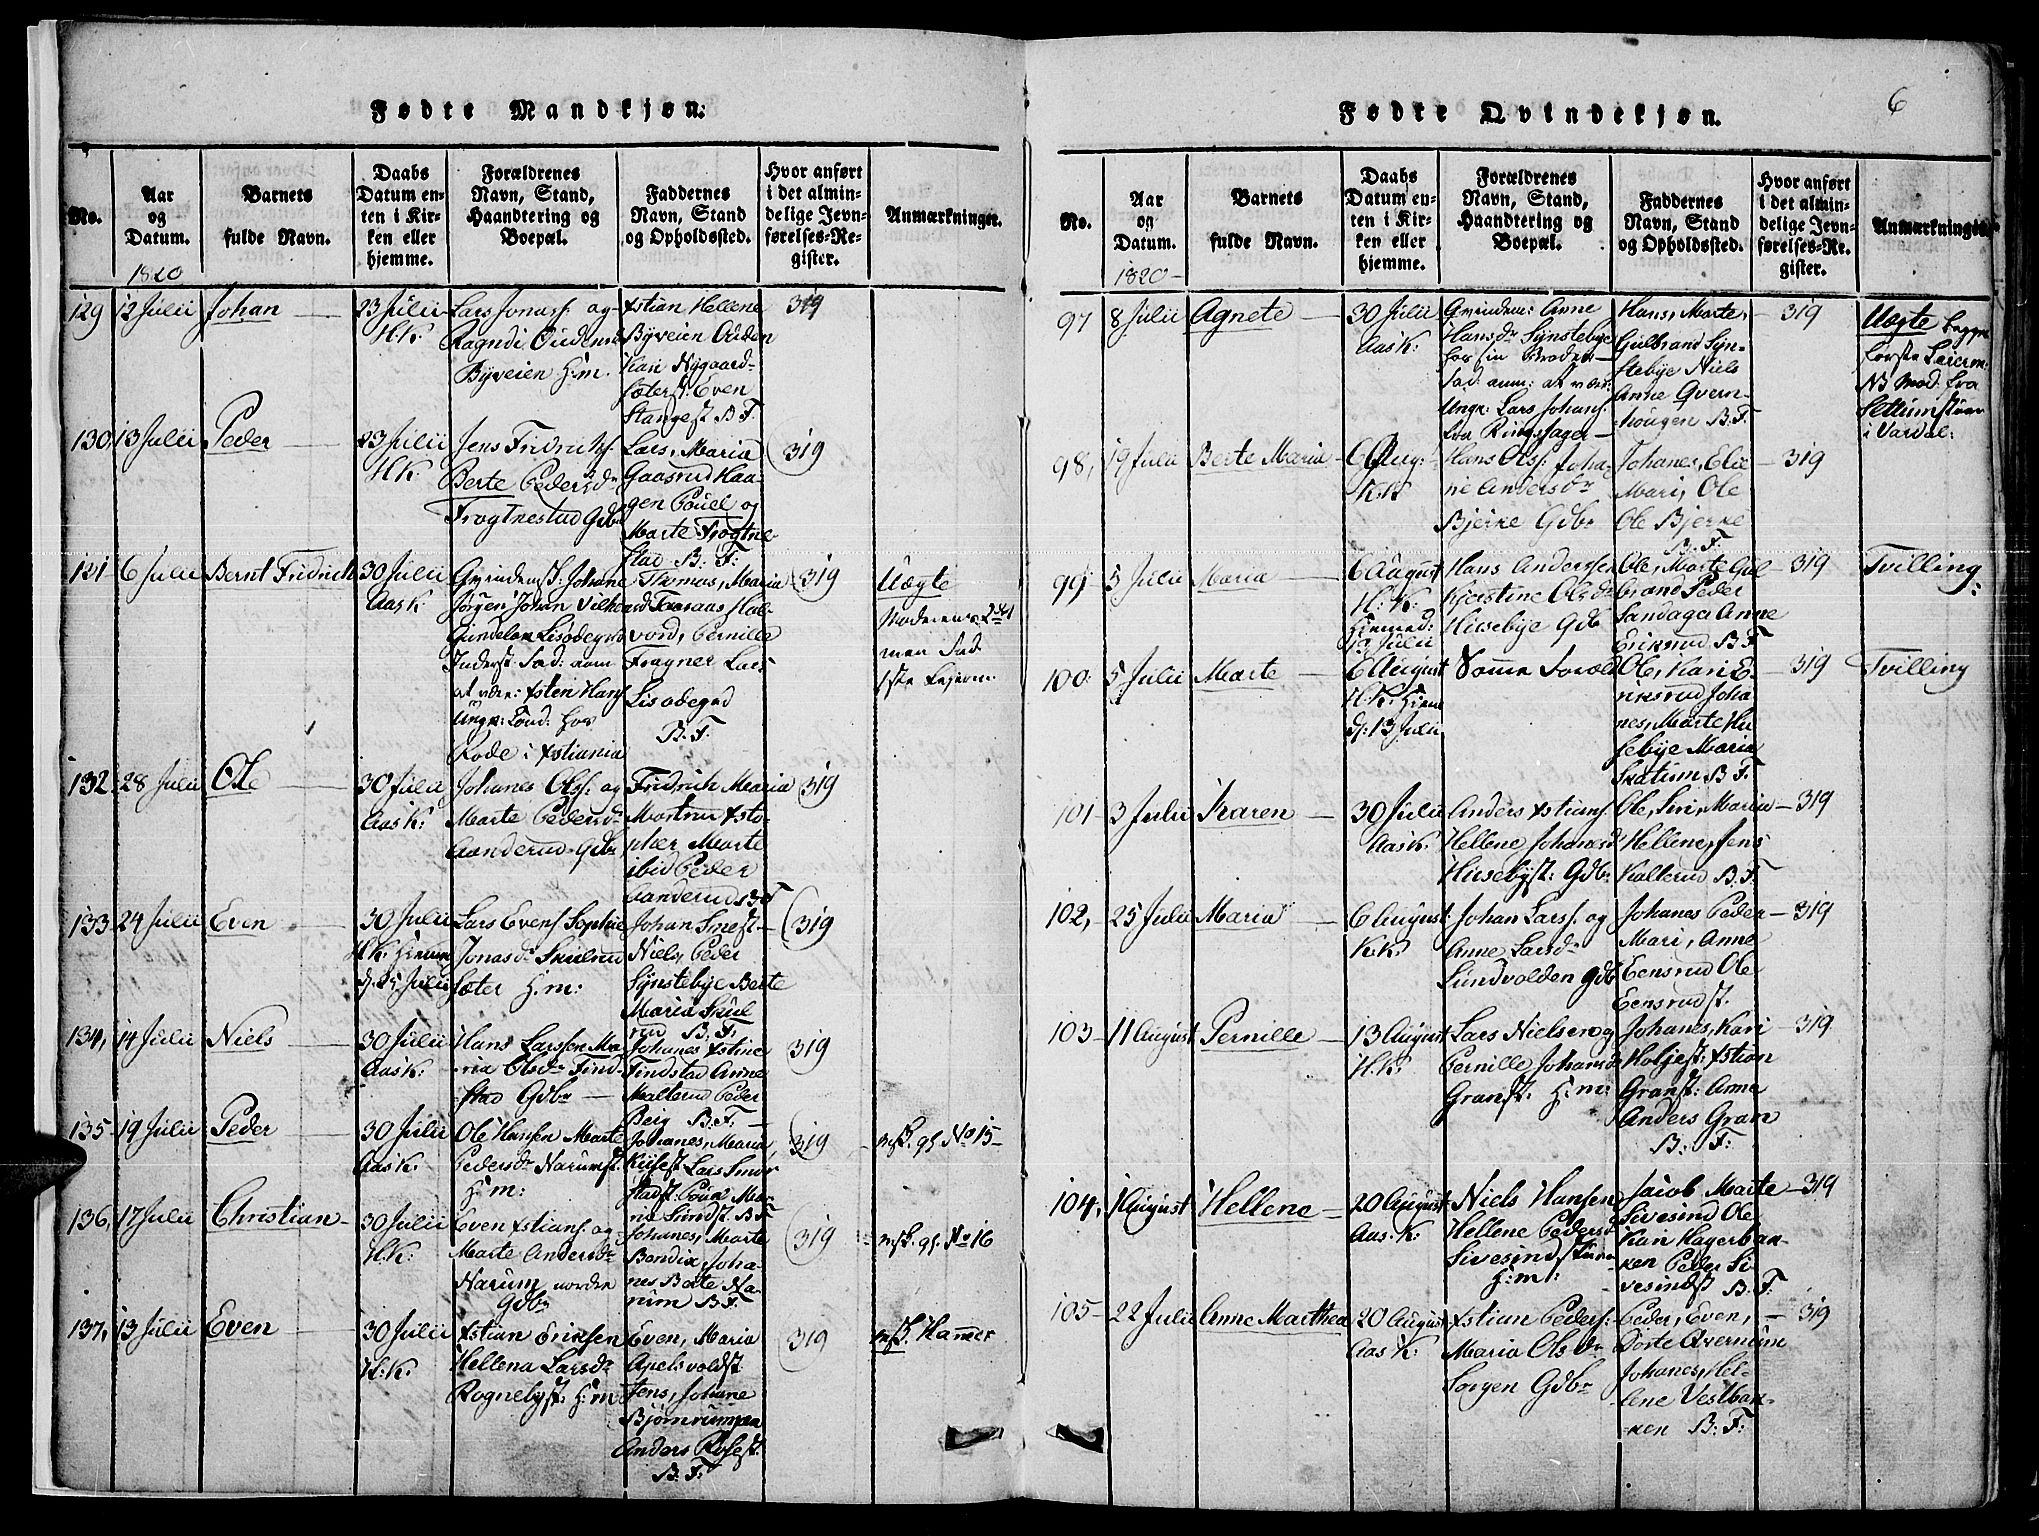 Fødte Mandkjøn:
No.
Aar
og
Datum.
Barnets
fulde Navn.
Daabs
Datum en-
ten i Kir-
ken eller
hjemme.
Forældrenes
Navn, Stand,
Haandtering og
Boepæl.
Faddernes
Navn, Stand
og Opholdssted.
Hvor anført
i det almin-
delige Jevn-
førelses-Re-
gister.
Anmærkninger.
1820
129 12 Julii Johan
23 Julii
H.K.
Lars Jonas. og
Ragndi Oudensd
Byveien H.m.
Xstian Hellene
Byveien Ouden
Kari Nygaard-
sæter. Even
Stangest B.F.
319
130 13 Julii Peder
23 Julii
H.K.
Jens Fridrichs.
Berte Pedersdr
Frogtnestad Gdbr
Lars, Maria
Gaasrud Haa-
gen Pouel og
Marte Frogtne-
stad B.F.
319
131 6 Julii Bernt Fridrich
30 Julii
Aas K.
Thomas, Maria
vord, Pernille
Fragner Lars
Lisodegrd
B.F.
319
Uægte
132 28 Julii Ole
30 Julii
Aas K:
Johanes Ols. og
Marte Pedersdr
Aanderud Gdbr
Fridrich Maria
Xsto-
pher Marte
ibid Peder
Aanderud B.F
319
133 24 Julii Even
30 Julii
H.K. Hjemme
d. 25 Julii
Lars Evens. Sophie
Jonasdr Skulrud
sæter H.m:
Johan Smest
Niels, Peder
Synstebye Berte
Maria Skul
rud B.F.
319
134, 14 Julii Niels
30 Julii
Aas K.
Hans Larssen Ma-
ria Olsdr Find-
stad Gdbr
Johanes Xstine
Findstad Anne
Malterud Peder
Berg B.F.
319
135 19 Julii Peder
30 Julii
Aas K.
Ole Hansen Marte
Pedersdr Narumst.
H:m:
Johanes, Maria
319
No 15
136, 17 Julii Christian
30 Julii
H.K.
Even Xstians. og
Marte Andersdr
Narum nordre
Gdbr
Johanes, Marte
Bendix, Joha-
nes Berte Na-
rum B.F.
319
No 16
137, 13 Julii Even
30 Julii
H.K.
Xstian Eriksen
Hellena Larsdr
Rognebyst. H:m
Even, Maria
Apelsvoldst
Jens, Johane
Anders Rosest.
B.F.
319
Hammer
Fødte Qvindekjøn.
6
No.
Aar
og
Datum.
Barnets
fulde Navn.
Daabs
Datum en-
ten i Kir-
ken eller
hjemme.
Forældrenes
Navn, Stand,
Haandtering og
Boepæl.
Faddernes
Navn, Stand
og Opholdssted.
Hvor anført
i det almin-
delige Jevn-
førelses-Re-
gister.
Anmærkninger
1820
97 8 Julii Agnete
30 Julii
Aas K:
Qvinden: Anne
Hansdr Synstebye
hos sin Broder
Ungk: Lars Johans.
fra Ringsager
Hans, Marte,
Gulbrand Syn-
stebye Niels
Anne Qvern-
hougen B.F.
319
Uægte begge
første Leierm.
i Vardal:
98, 19 Julii Berte Maria
6 Aug:
K.K
Hans Ols. Joha
ne Andersdr
Bjerke Gdbr
Johanes, Elie
Mari, Ole
Ole Bjerke
B.F.
319
99 5 Julii Maria
6 August
H:K:
Hjemmed:
13 Julii
Hans Anderssen
Kjerstine Olsdr
Husebye Gdbr
Ole, Marte Gul
brand Peder
Sandager Anne
Eriksrud B.F.
319
Tvilling:
100 5 Julii Marte
6 August
H.K. Hjem
d. 13 Julii
Samme Foræld
Ole, Kari E-
riksrud Joha-
nes, Marte Hu
sebye Maria
Skatum B.F.
319
Tvilling
101 3 Julii Karen
30 Julii
Aas K.
Anders Xstians.
Hellene Johanesd
Husebyst: Gdbr
Ole, Siri, Maria
Hellene, Jens
Kalterud B.F.
319
102, 25 Julii Maria
6 August
K.K.
Johan Lars. og
Anne Larsdr
Sundvolden Gdb
Johanes Peder
Mari, Anne
Eensrud Ole
Eensrudst.
319
103 11 August Pernille
13 August
H.K.
Lars Nielsen og
Pernille Johansd
Granst. H:m:
Johanes, Kari
Holjest. Xstian
Granst. Anne
Anders Gran
B:F:
319
104, 1 August Hellena
20 August
Aas. K.
Niels Hansen
Hellene Pedersd
Sivesind
H:m:
Jacob Marte
Sivesind Ole
Kari Hagerbak-
ken Peder Si-
vesindst B.F.
319
105 22 Julii Anne Marthea
20 August
Aas K.
Xstian Peders:
Maria Olsdr
Sorgen Gdbr
Peder, Even,
Dorte Qvernum
Johanes, Hel-
lene Vestbak-
ken B:F:
319